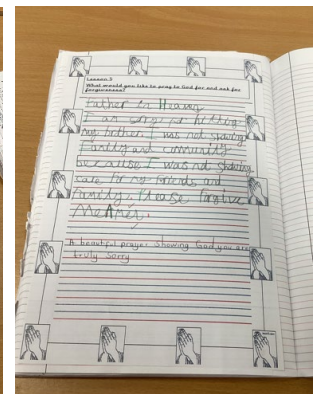 Lesson 5
What would you like to pray to God for and ask for
forgiveness?
Father in Heaven
I am sorry for hitting
my brother I was not showing
Family and community
because I was not showing
care for my friends and
Family. Please forgive
Me Amen.
A beautiful prayer showing God you are
truly sorry